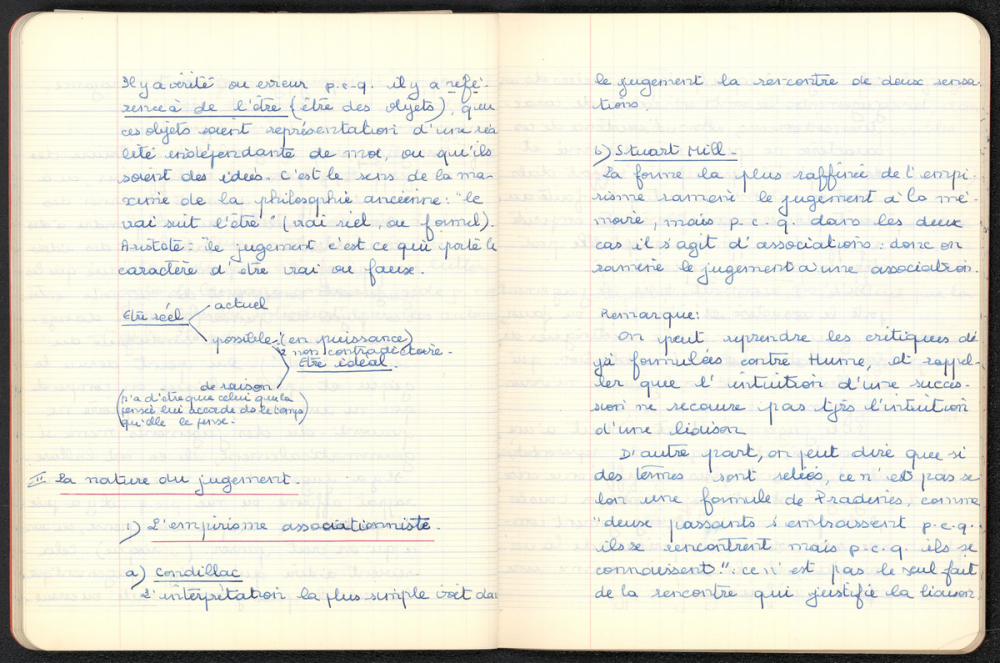 Il y a vérité ou erreur p.c.q. il y a réfé-
rence à de l'être (être des objets), que
ces objets soient représentation d'une réa
lité indépendante de moi, ou qu'ils
soient des idées. C'est le sens de la ma-
xime de la philosophie ancienne: "le
vrai suit l'être" (vrai réel, ou formel).
Aristote: "le jugement c'est ce qui porte le
caractère d'être vrai ou faux.
Etre réel
actuel
possible: (en puissance)
non contradictoire.
Etre idéal.
de raison
(n'a d'être que celui que la
pensée lui accorde ds le temps
qu'elle le pense.)
II La nature du jugement.
1) L'empirisme associationniste.
a) Condillac
L'interprétation la plus simple voit da
le jugement la rencontre de deux sensa-
tions.
b) Stuart Mill.
La forme la plus raffinée de l'empi-
risme ramène le jugement à la mé-
moire, mais p.c.q. dans les deux
cas il s'agit d'associations: donc on
ramène le jugement à une association.
Remarque:
On peut reprendre les critiques dé
jà formulées contre Hume, et rappe-
ler que l'intuition d'une succes-
sion ne recouvre pas tjrs l'intuition
d'une liaison
D'autre part, on peut dire que si
des termes sont reliés, ce n'est pas se
lon une formule de Pradines, comme
"deux passants s'embrassent p.c.q.
ils se rencontrent mais p.c.q. ils se
connaissent": ce n'est pas le seul fait
de la rencontre qui justifie la liaison